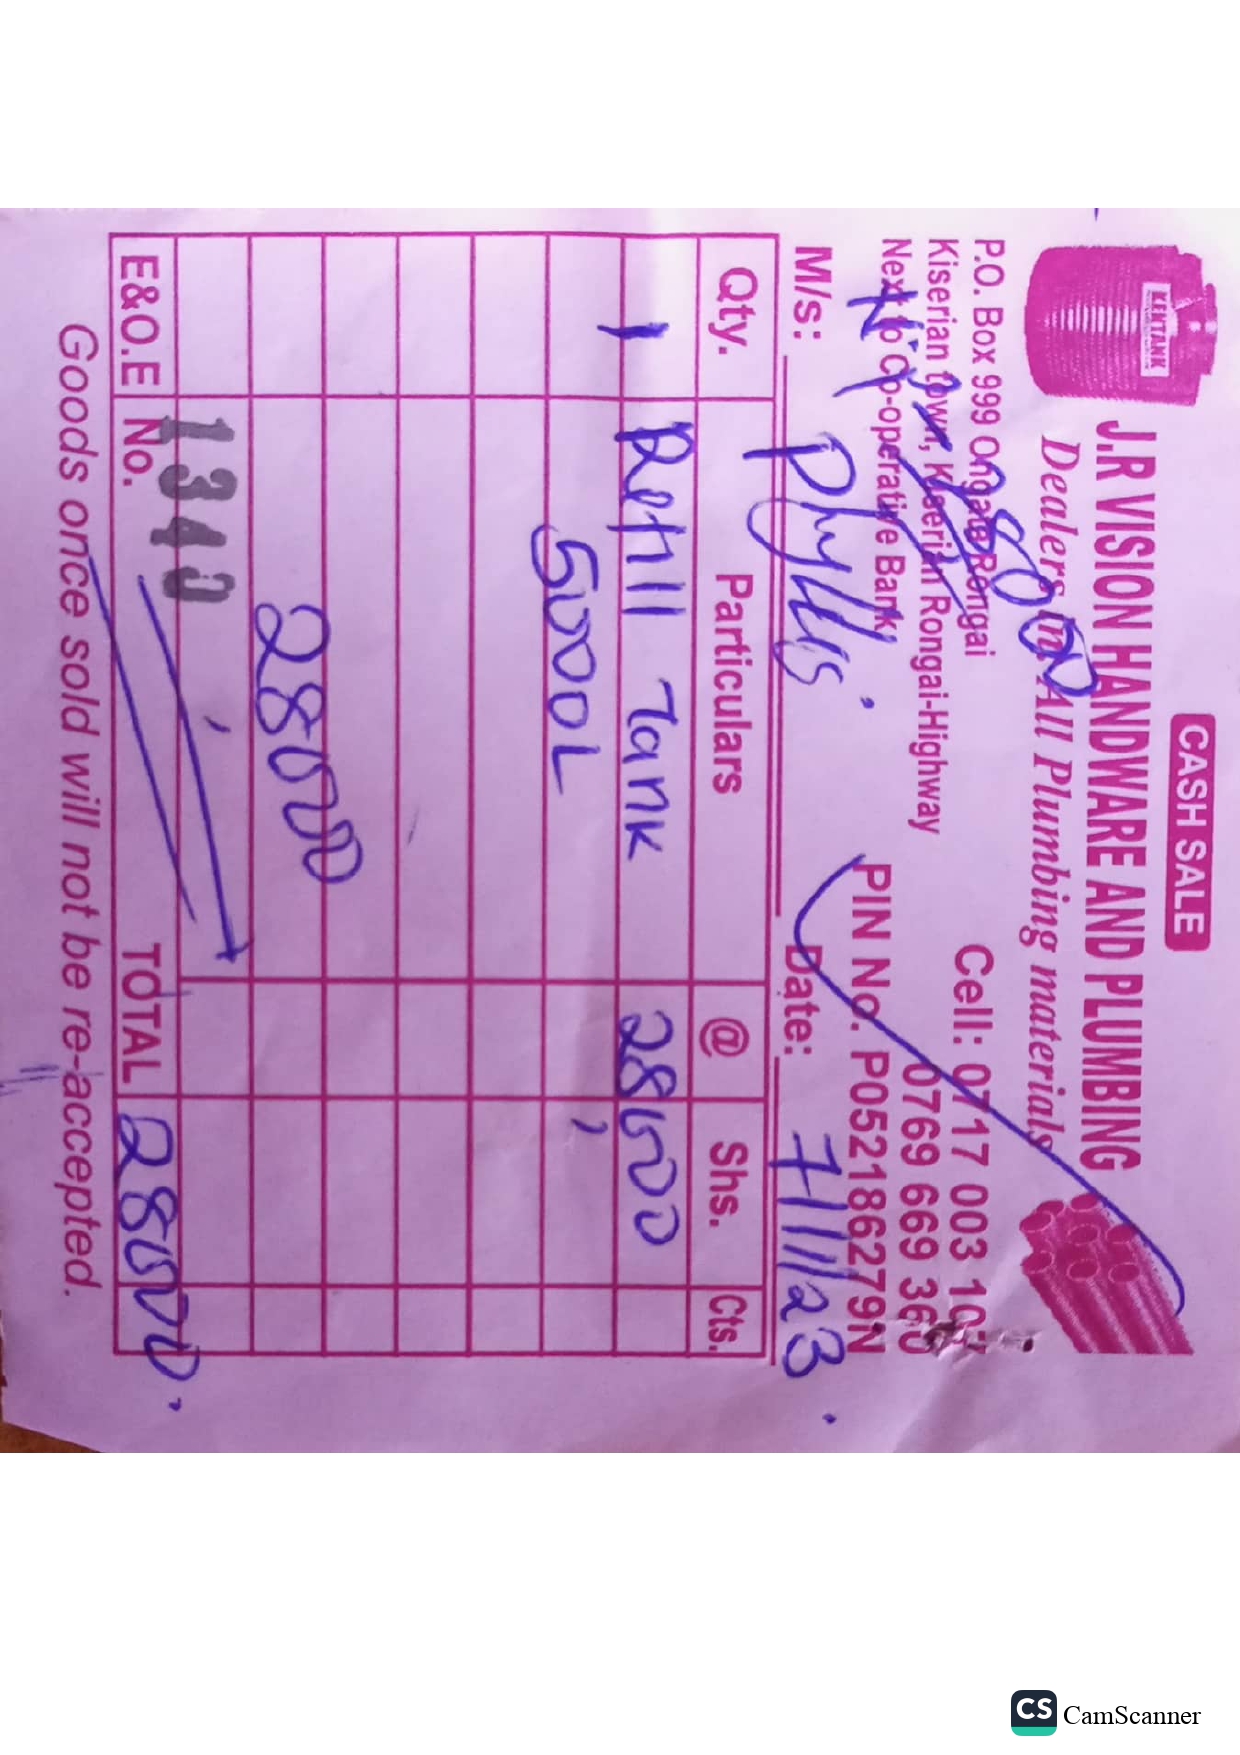 CASH SALE
KENTANK
J.R VISION HANDWARE AND PLUMBING
Dealers in All Plumbing materials
P.O. Box 999 Ongata Rongai
Kiserian town, Kiserian Rongai-Highway
Next to Co-operative Bank
Cell: 0717 003 107
0769 669 360
PIN No. P052186279N
M/s: Phyllis Date: 7/11/23
Qty. Particulars @ Shs. Cts.
1 Refill Tank 28000
5000L
28000
E&O.E No. 1340 TOTAL 28000
Goods once sold will not be re-accepted.
CS CamScanner